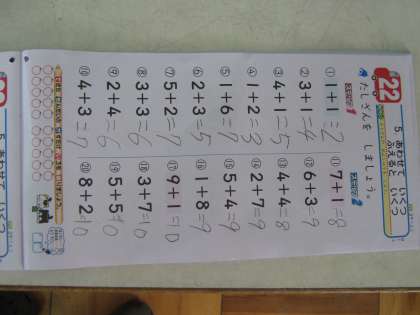 22
5. あわせて いくつ
ふえると いくつ
たしざんを しましょう。
① 1+1=2
② 3+1=4
③ 4+1=5
④ 1+2=3
⑤ 1+6=7
⑥ 2+3=5
⑦ 5+2=7
⑧ 3+3=6
⑨ 2+4=6
⑩ 4+3=7
⑪ 7+1=8
⑫ 6+3=9
⑬ 4+4=8
⑭ 2+7=9
⑮ 5+4=9
⑯ 1+8=9
⑰ 9+1=10
⑱ 3+7=10
⑲ 5+5=10
⑳ 8+2=10
5. あわせて いくつ
ふえると いくつ